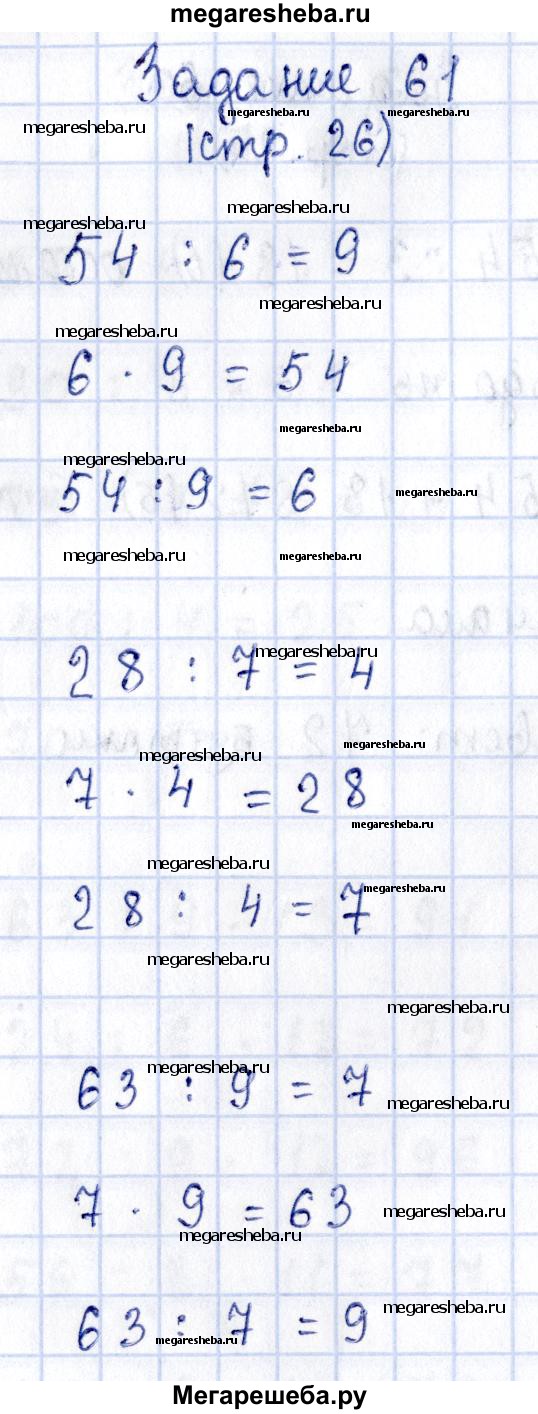 megaresheba.ru
Задание 61
megaresheba.ru megaresheba.ru
megaresheba.ru
(стр. 26)
megaresheba.ru
megaresheba.ru
54 : 6 = 9
megaresheba.ru
megaresheba.ru
6 · 9 = 54
megaresheba.ru
megaresheba.ru
54 : 9 = 6
megaresheba.ru
megaresheba.ru megaresheba.ru
28 : 7 = 4
megaresheba.ru
megaresheba.ru
megaresheba.ru
7 · 4 = 28
megaresheba.ru
megaresheba.ru
megaresheba.ru
28 : 4 = 7
megaresheba.ru
megaresheba.ru
megaresheba.ru
63 : 9 = 7
megaresheba.ru
7 · 9 = 63
megaresheba.ru
megaresheba.ru
megaresheba.ru
63 : 7 = 9
megaresheba.ru
Мегарешеба.ру